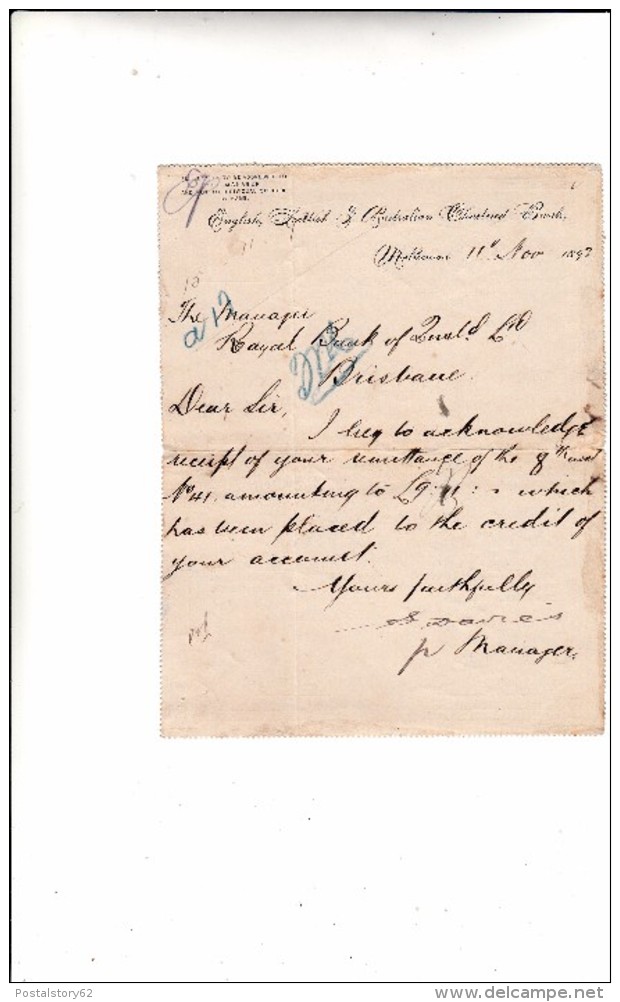 MANAGER
English, Scottish & Australian Chartered Bank,
Melbourne 11th Nov 1892
The Manager
Royal Bank of Qnsld Ld
Brisbane
Dear Sir,
I beg to acknowledge
receipt of your remittance of the 8th
No 41 amounting to £9 : 11 : - which
has been placed to the credit of
your account.
Yours faithfully
S Davies
p Manager.
Postalstory62
delcampe.net